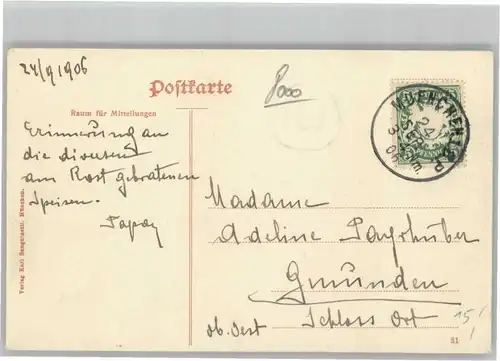 24/9 1906
Postkarte
Raum für Mitteilungen
8000
Erinnerung an
die diversen
am Rost gebratenen
Speisen.
Papa
MUENCHEN
24. SEP.
3
Madame
Adeline Payrhuber
Gmunden
ob. Oest Schloss Ort
15/
Verlag Karl Sanguinetti, München.
51